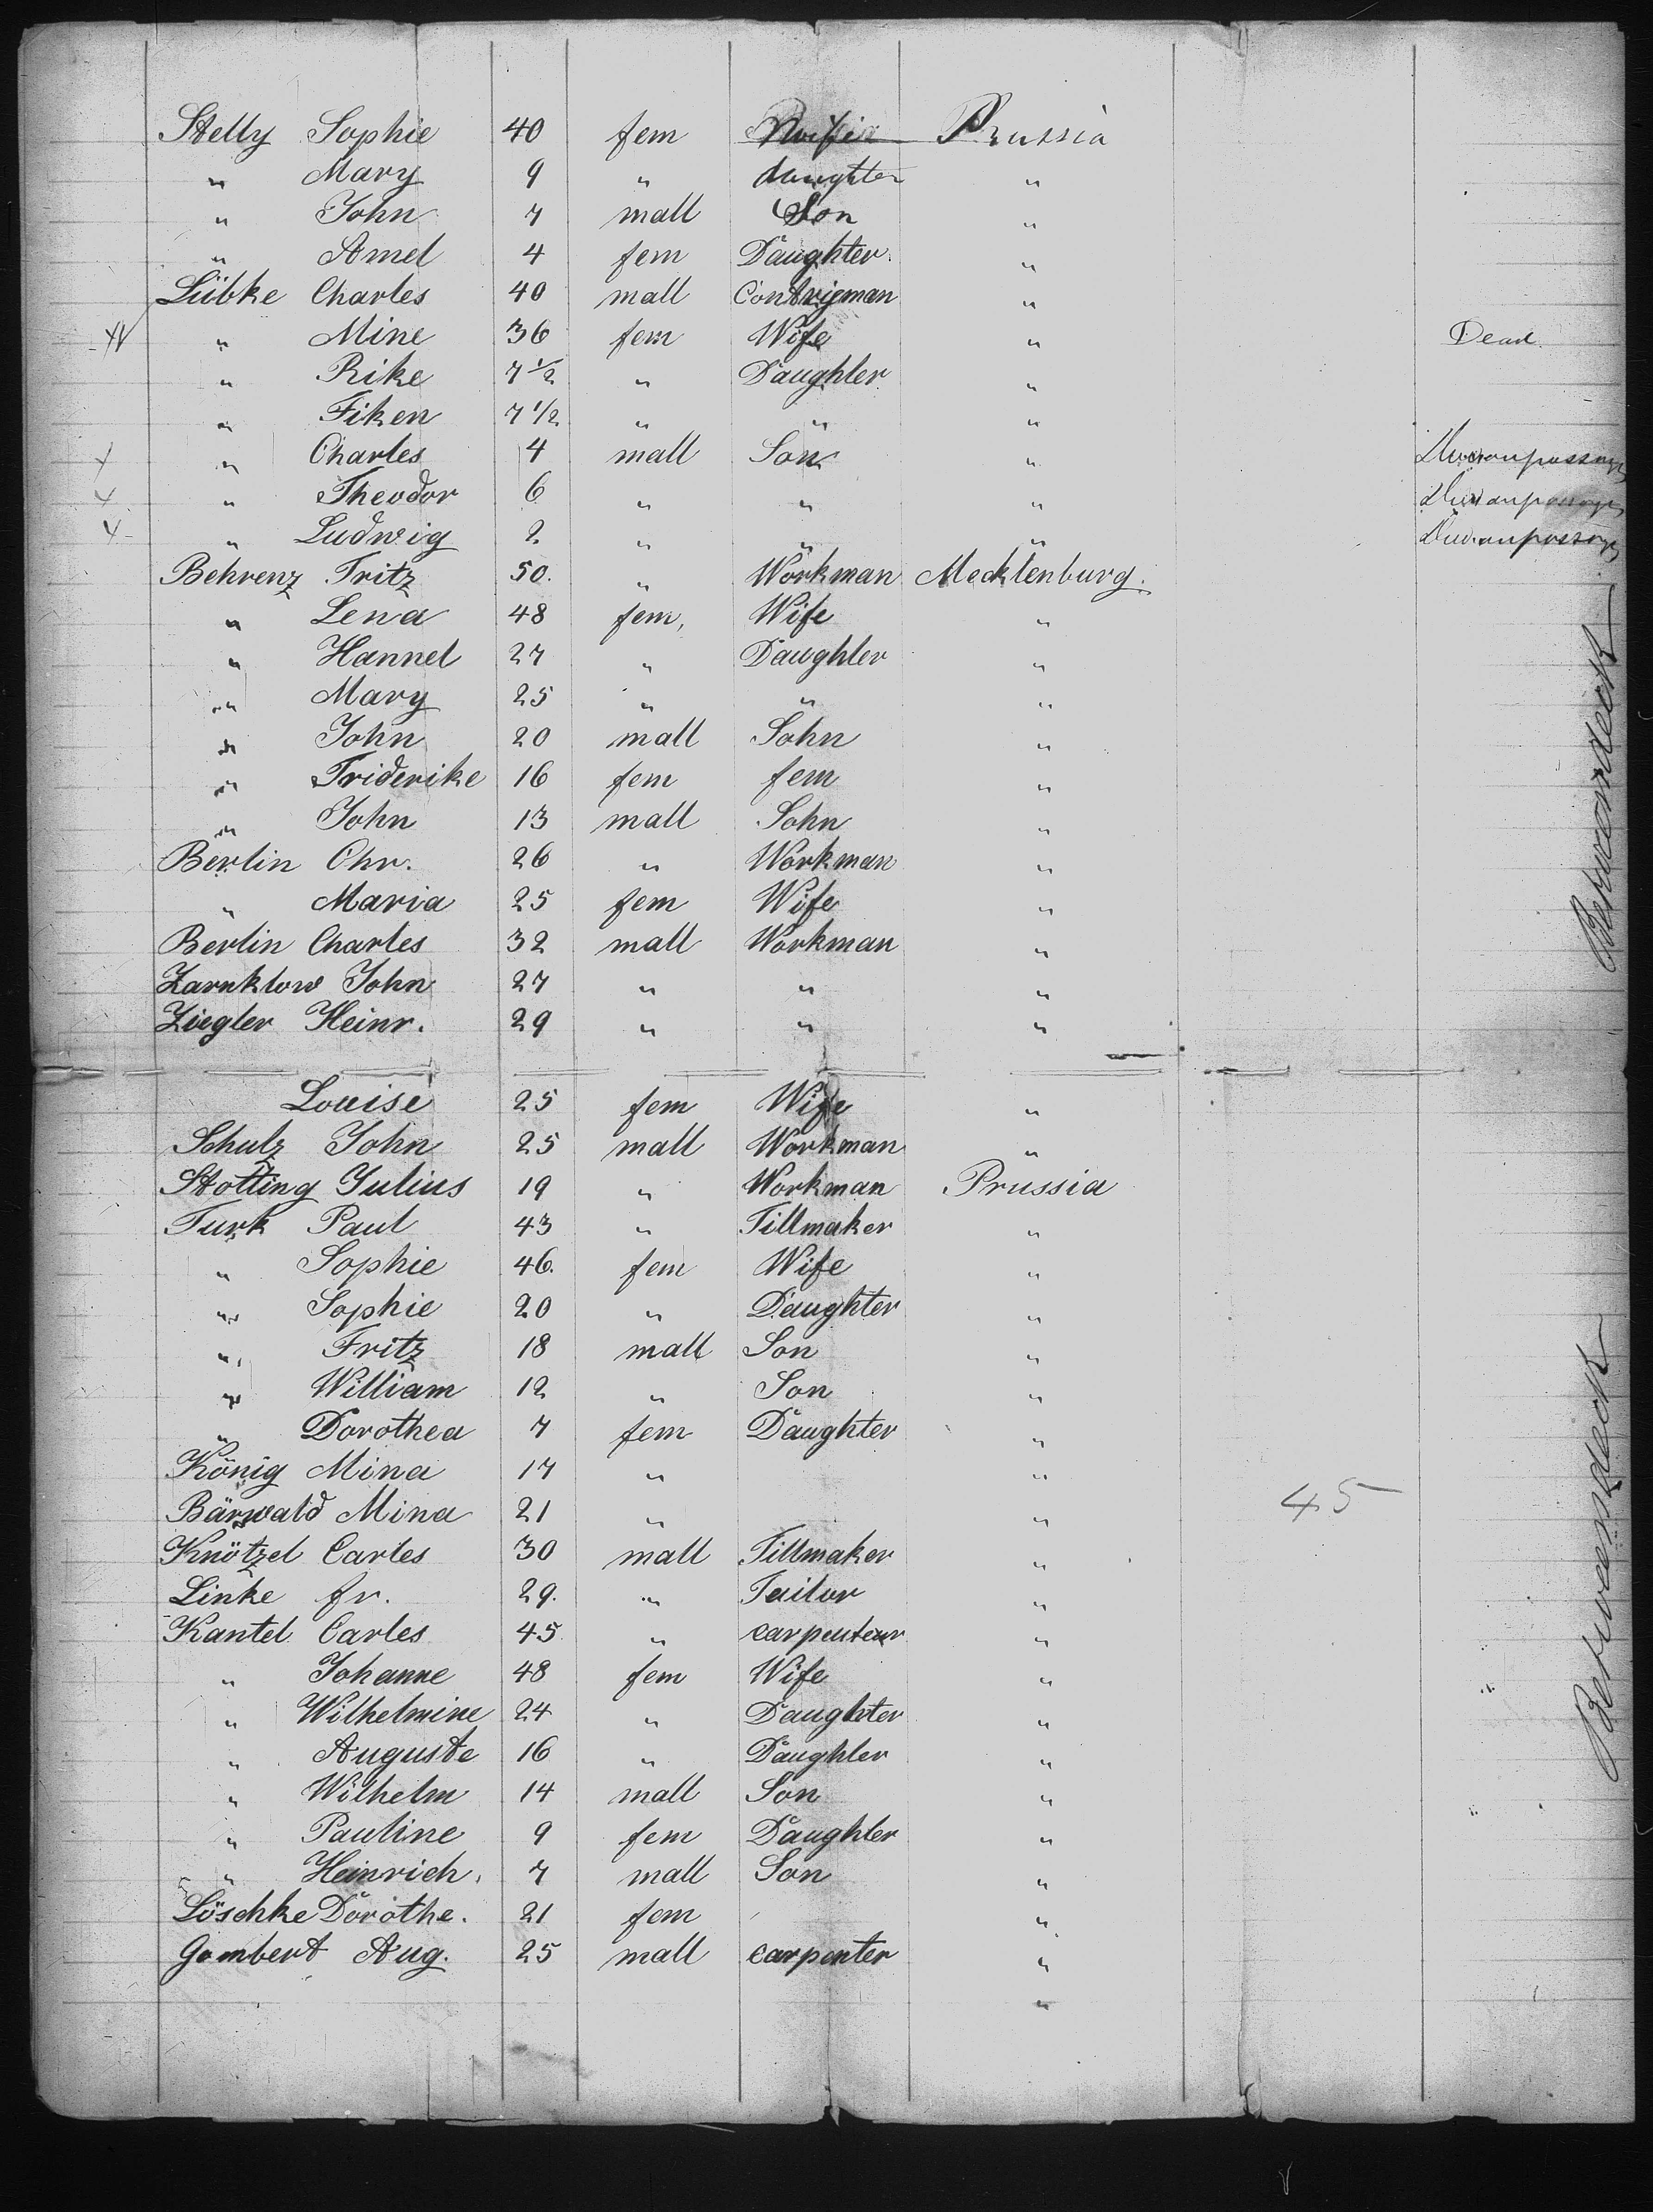 Stelly Sophie 40 fem Wife Prussia
" Mary 9 " daughter "
" John 7 mall Son "
" Amel 4 fem Daughter "
Lübke Charles 40 mall Contrijman "
" Mine 36 fem Wife " Dead.
" Rike 7 1/2 " Daughter "
" Fiken 7 1/2 " " "
" Charles 4 mall Son " Died on passage
" Theodor 6 " " " Died on passage
" Ludwig 2 " " " Died on passage
Behrenz Fritz 50. " Workman Mecklenburg.
" Lena 48 fem, Wife "
" Hannel 27 " Daughter "
" Mary 25 " " "
" John 20 mall Sohn "
" Friderike 16 fem fem "
" John 13 mall Sohn "
Berlin Chr. 26 " Workman "
" Maria 25 fem Wife "
Berlin Charles 32 mall Workman "
Zarnklow John 27 " " "
Ziegler Heinr. 29 " " "
Louise 25 fem Wife "
Schulz John 25 mall Workman "
Stotting Julius 19 " Workman Prussia
Turk Paul 43 " Tillmaker "
" Sophie 46. fem Wife "
" Sophie 20 " Daughter "
" Fritz 18 mall Son "
" William 12 " Son "
" Dorothea 7 fem Daughter "
König Mina 17 " "
Bärwald Mina 21 " " 45
Knötzel Carles 30 mall Tillmaker "
Linke fr. 29. " Tailor "
Kantel Carles 45 " carpenteur "
" Johanne 48 fem Wife "
" Wilhelmine 24 " Daughter "
" Auguste 16 " Daughter "
" Wilhelm 14 mall Son "
" Pauline 9 fem Daughter "
" Heinrich. 7 mall Son "
Löschke Dorothe. 21 fem "
Gombert Aug. 25 mall carpenter "
"
Betweendeck
Betweendeck